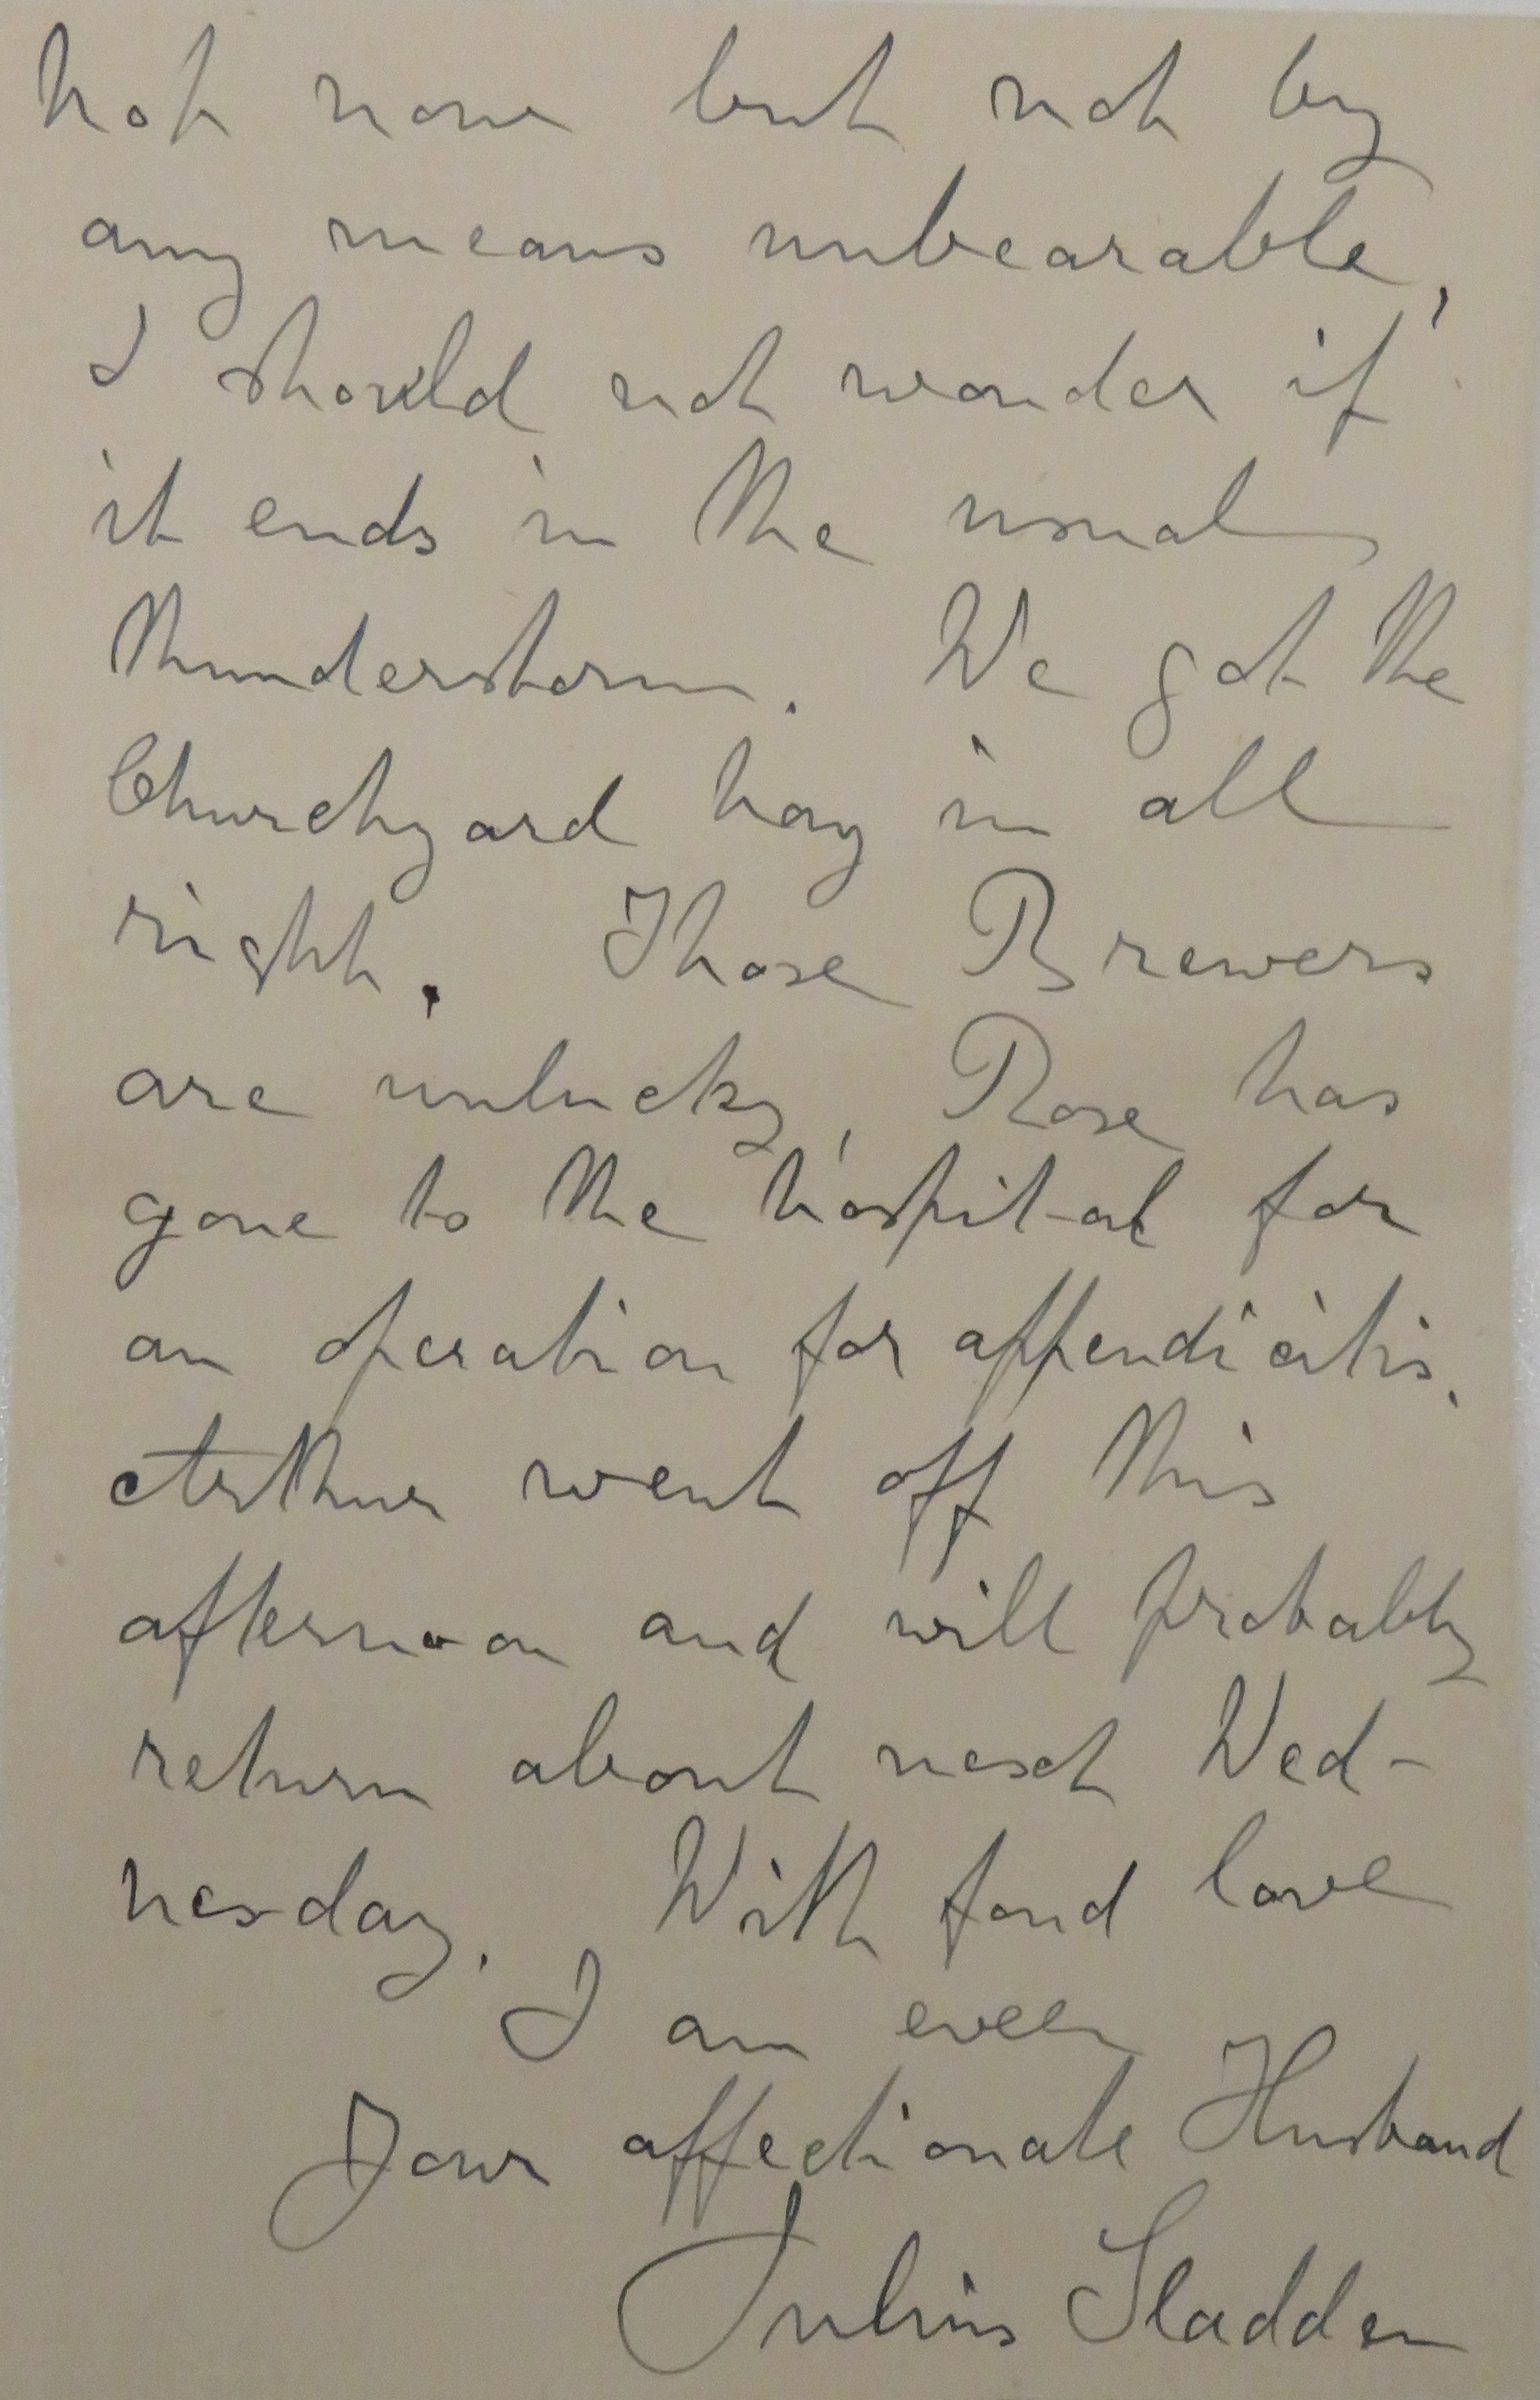 hot now but not by
any means unbearable,
I should not wonder if
it ends in the usual
thunderstorm. We got the
Churchyard hay in all
right. Those Brewers
are unlucky, Rose has
gone to the hospital for
an operation for appendicitis.
Arthur went off this
afternoon and will probably
return about next Wed-
nesday. With fond love
I am ever
Your affectionate Husband
Julius Sladden